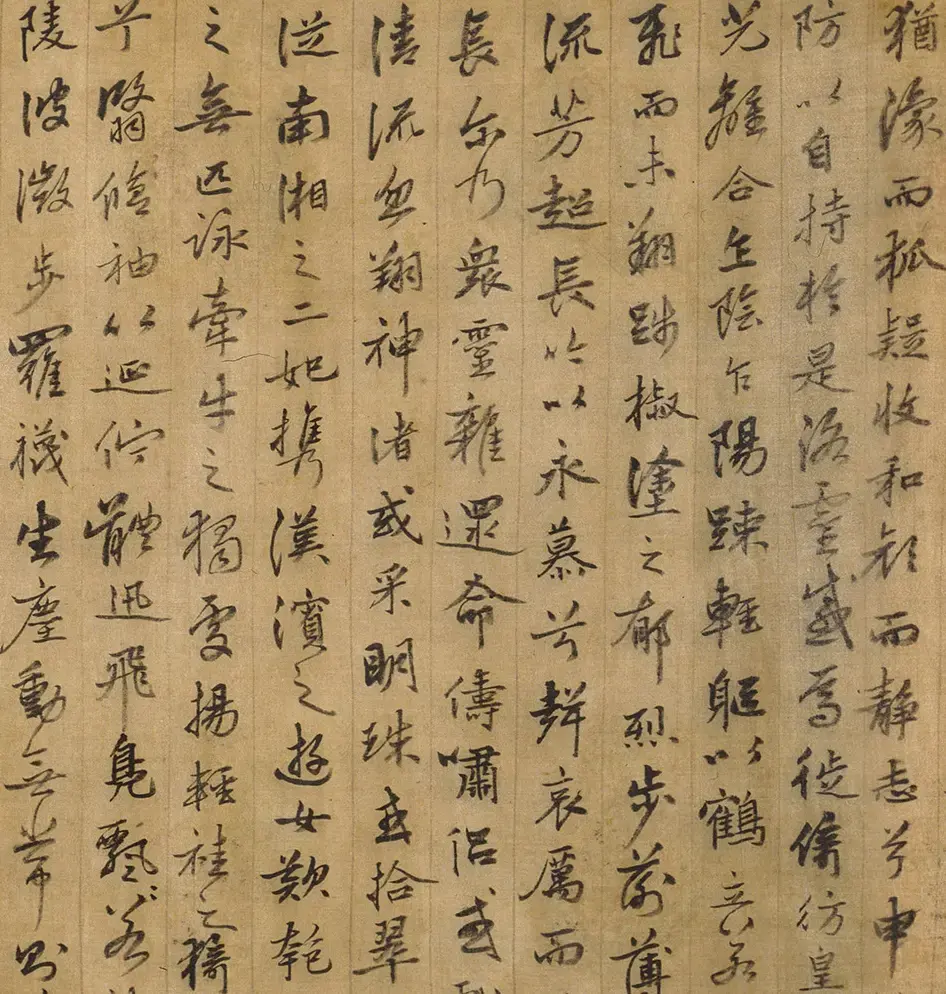 猶濛而狐疑收和顏而靜志兮申
防以自持於是洛靈感焉徙倚彷皇
光離合乍陰乍陽竦輕軀以鶴立若
飛而未翔踐椒塗之郁烈步蘅薄
流芳超長吟以永慕兮聲哀厲而
長尒乃衆靈雜還命儔嘯侶或
清流忽翔神渚或采明珠或拾翠
從南湘之二妃攜漢濱之遊女歎匏
之無匹詠牽牛之獨處揚輕袿之猗
兮翳脩袖以延佇體迅飛鳧飄忽若
陵波微步羅襪生塵動無常則